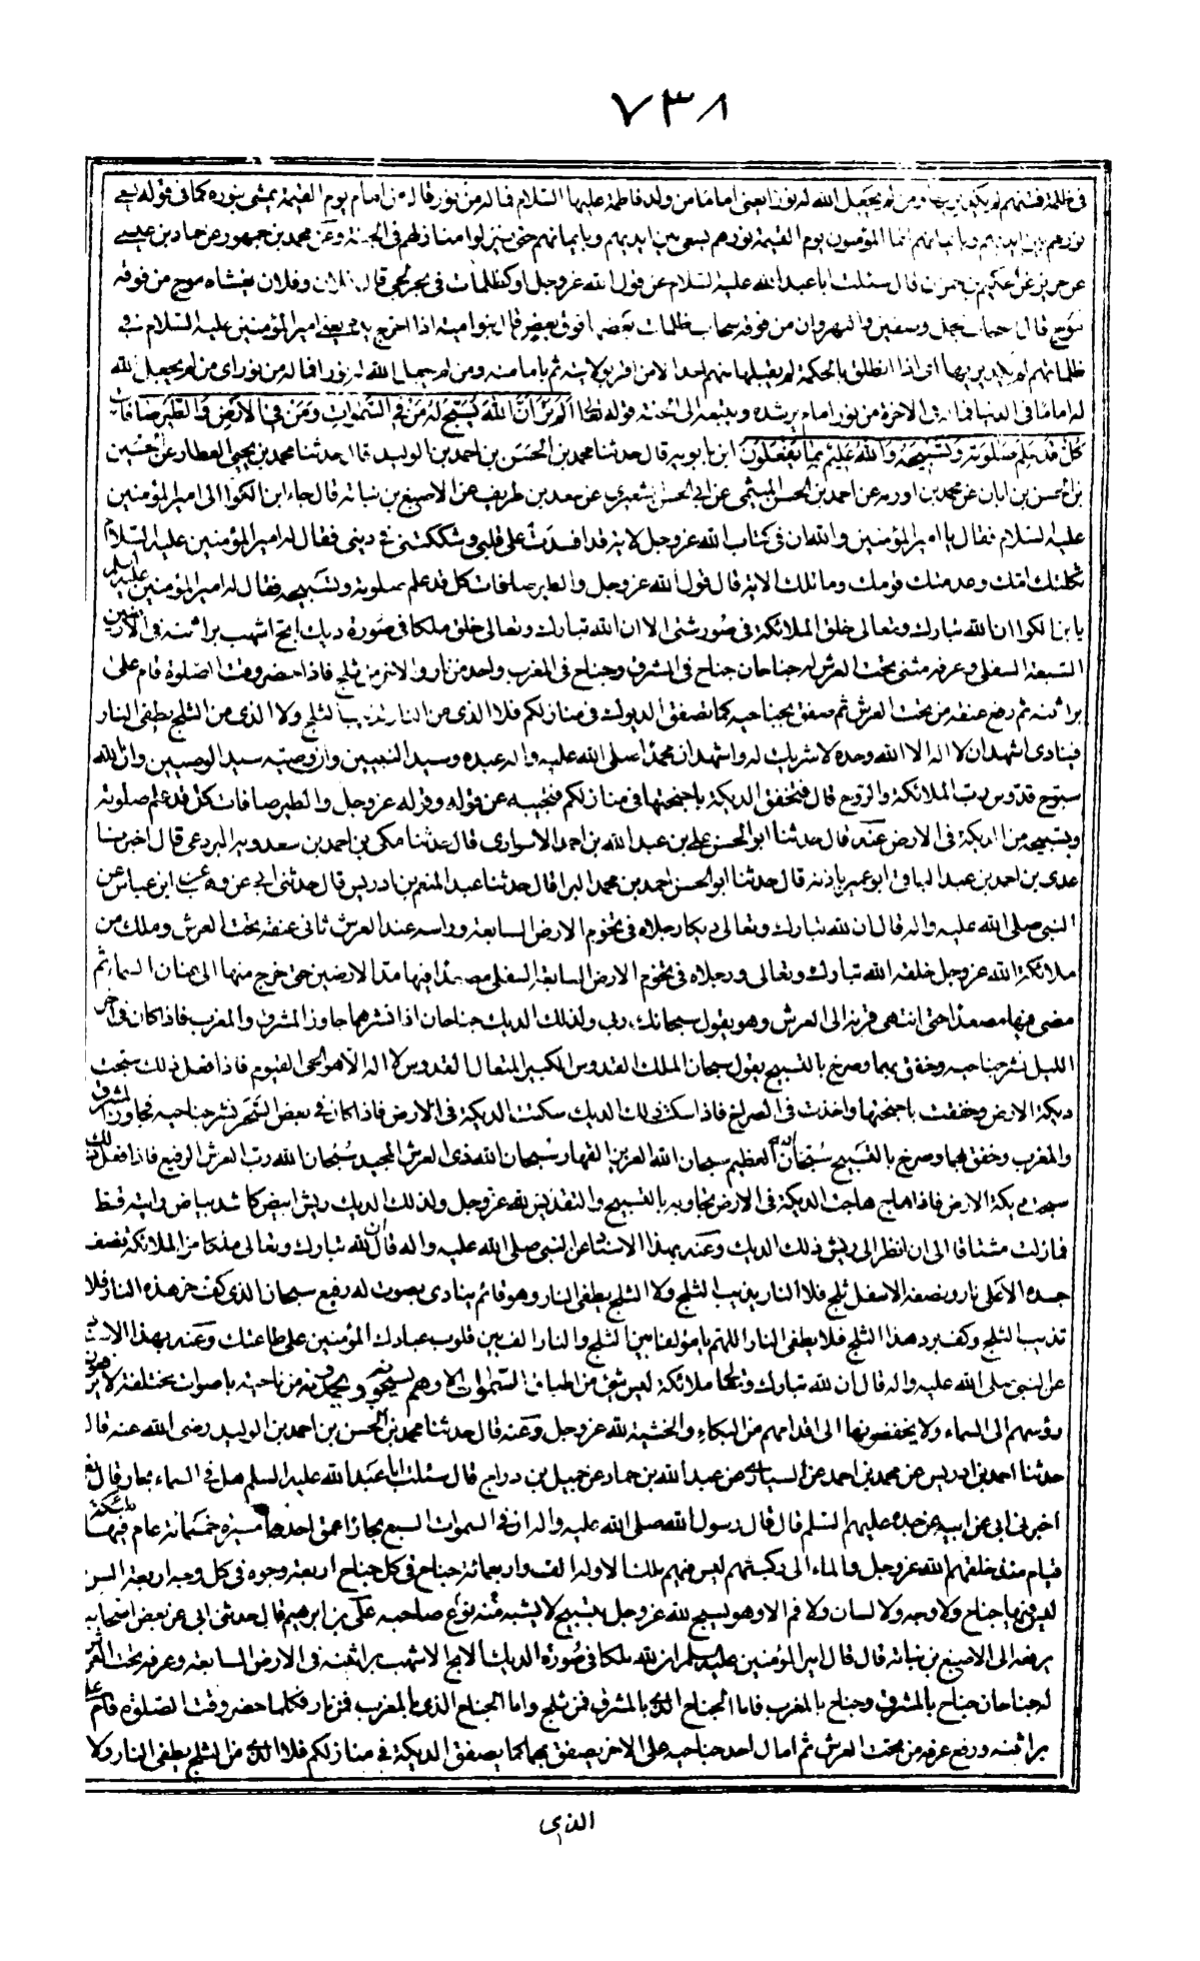 ٧٣٨
فى ظلمة فتنتهم لم يكد يريها ومن لم يجعل الله له نورا يعنى اماما من ولد فاطمة عليها السلام فما له من نور فما له من امام يوم القيمة يمشى بنوره كما فى قوله يسعى
نورهم بين ايديهم وبايمانهم انما المؤمنون يوم القيمة نورهم يسعى بين ايديهم وبايمانهم حتى ينزلوا منازلهم فى الجنة وعن محمد بن جمهور عن حماد بن عيسى
عن حريز عن الحكم بن حمران قال سئلت ابا عبد الله عليه السلام عن قول الله عز وجل او كظلمات فى بحر لجى قال فلان وفلان يغشاه موج من فوقه
موج قال اصحاب جمل وصفين والنهروان من فوقه سحاب ظلمات بعضها فوق بعض قال بنو امية اذا اخرج يده يعنى امير المؤمنين عليه السلام فى
ظلماتهم لم يكد يريها اى اذا انطلق بالحكمة لم يقبلها منهم احد الا من اقر بولايته ثم بامامته ومن لم يجعل الله له نورا فما له من نور اى من لم يجعل الله
له اماما فى الدنيا فما له فى الاخرة من نور امام يرشده ويتبعه الى الجنة قوله تعالى الم تر ان الله يسبح له من فى السموات ومن فى الارض والطير صافات
كل قد علم صلوته وتسبيحه والله عليم بما يفعلون ابن بابويه قال حدثنا محمد بن الحسن بن احمد بن الوليد قال حدثنا محمد بن يحيى العطار عن الحسين
بن الحسن بن ابان عن محمد بن اورمه عن احمد بن الحسن الميثمى عن ابى الحسن الشعيرى عن سعد بن طريف عن الاصبغ بن نباتة قال جاء ابن الكوا الى امير المؤمنين
عليه السلام فقال يا امير المؤمنين والله ان فى كتاب الله عز وجل لاية قد افسدت على قلبى وشككتنى فى دينى فقال له امير المؤمنين عليه السلام
ثكلتك امك وعدمتك قومك وما تلك الاية قال قول الله عز وجل والطير صافات كل قد علم صلوته وتسبيحه فقال له امير المؤمنين عليه السلم
يا بن الكوا ان الله تبارك وتعالى خلق الملائكة فى صور شتى الا ان الله تبارك وتعالى خلق ملكا فى صورة ديك ابح اشهب براثنه فى الارضين
السبعة السفلى وعرفه مثنى تحت العرش له جناحان جناح فى المشرق وجناح فى المغرب واحد من نار والاخر من ثلج فاذا حضر وقت الصلوة قام على
براثنه ثم رفع عنقه من تحت العرش ثم صفق بجناحيه كما تصفق الديوك فى منازلكم فلا الذى من النار يذيب الثلج ولا الذى من الثلج يطفى النار
فينادى اشهد ان لا اله الا الله وحده لا شريك له واشهد ان محمدا صلى الله عليه واله عبده وسيد النبيين وان وصيه سيد الوصيين وان الله
سبوح قدوس رب الملائكة والروح قال فتخفق الديكة باجنحتها فى منازلكم فتجيبه عن قوله وقوله عز وجل والطير صافات كل قد علم صلوته
وتسبيحه من الديكة فى الارض عنه قال حدثنا ابو الحسن على بن عبد الله بن احمد الاسوارى قال حدثنا مكى بن احمد بن سعدويه البردعى قال اخبرنا
عدى بن احمد بن عبد الباقى ابو عمير باذنه قال حدثنا ابو الحسن احمد بن محمد البرا قال حدثنا عبد المنعم بن ادريس قال حدثنى ابى عن وهب عن ابن عباس عن
النبى صلى الله عليه واله قال ان لله تبارك وتعالى ديكا رجلاه فى تخوم الارض السابعة وراسه عند العرش ثانى عنقه تحت العرش وملك من
ملائكة الله عز وجل خلقه الله تبارك وتعالى ورجلاه فى تخوم الارض السابعة السفلى مصعدا فيها مد الارضين حتى خرج منها الى عنان السماء ثم
مضى فيها مصعدا حتى انتهى قرنه الى العرش وهو يقول سبحانك ربى ولذلك الديك جناحان اذا نشرهما جاوز المشرق والمغرب فاذا كان فى اخر
الليل نشر جناحيه وخفق بهما وصرخ بالتسبيح يقول سبحان الملك القدوس الكبير المتعال القدوس لا اله الا هو الحى القيوم فاذا فعل ذلك سبحت
ديكة الارض وخفقت باجنحتها واخذت فى الصراخ فاذا سكن ذلك الديك سكنت الديكة فى الارض فاذا كان فى بعض السحر نشر جناحيه فجاوز المشرق
والمغرب وخفق بهما وصرخ بالتسبيح سبحان الله العظيم سبحان الله العزيز القهار سبحان الله ذى العرش المجيد سبحان الله رب العرش الرفيع فاذا فعل ذلك
سبحت ديكة الارض فاذا هاج هاجت الديكة فى الارض تجاوبه بالتسبيح والتقديس لله عز وجل ولذلك الديك ريش ابيض كاشد بياض رايته قط
فما زلت مشتاقا الى ان انظر الى ريش ذلك الديك وعنه بهذا الاسناد عن النبى صلى الله عليه واله قال ان لله تبارك وتعالى ملكا من الملائكة نصف
جسده الاعلى نار ونصفه الاسفل ثلج فلا النار يذيب الثلج ولا الثلج يطفى النار وهو قائم ينادى بصوت له رفيع سبحان الذى كف حر هذه النار فلا
تذيب الثلج وكف برد هذا الثلج فلا يطفى النار اللهم يا مؤلفا بين الثلج والنار الف بين قلوب عبادك المؤمنين على طاعتك وعنه بهذا الاسناد
عن النبى صلى الله عليه واله قال ان لله تبارك وتعالى ملائكة ليس شئ من اطباق السموات الا وهم يسبحونه ويحمدونه من ناحيته باصوات مختلفة لا يرفعون
رؤسهم الى السماء ولا يخفضونها الى اقدامهم من البكاء والخشية لله عز وجل وعنه قال حدثنا محمد بن الحسن بن احمد بن الوليد رضى الله عنه قال
حدثنا احمد بن ادريس عن محمد بن احمد عن السيارى عن عبد الله بن حماد عن جميل بن دراج قال سئلت ابا عبد الله عليه السلم هل فى السماء بحار قال نعم
اخبرنى ابى عن ابيه عن جده عليهم السلم قال قال رسول الله صلى الله عليه واله ان فى السموات السبع بحارا عمق احدها مسيرة خمسمائة عام فيها ملائكة
قيام منذ خلقهم الله عز وجل والماء الى ركبتهم ليس منهم ملك الا وله الف واربعمائة جناح فى كل جناح اربعة وجوه فى كل وجه اربعة السن
ليس فيها جناح ولا وجه ولا لسان ولا فم الا وهو يسبح لله عز وجل بتسبيح لا يشبه منه نوع صاحبه على بن ابرهيم قال حدثنى ابى عن بعض اصحابه
يرفعه الى الاصبغ بن نباتة قال قال امير المؤمنين عليه السلم ان لله ملكا فى صورة الديك الابح الاشهب براثنه فى الارض السابعة وعرفه تحت العرش
له جناحان جناح بالمشرق وجناح بالمغرب فاما الجناح الذى بالمشرق فمن ثلج واما الجناح الذى بالمغرب فمن نار فكلما حضر وقت الصلوة قام على
براثنه ورفع عرفه من تحت العرش ثم امال احد جناحيه على الاخر يصفق بهما كما يصفق الديكة فى منازلكم فلا الذى من الثلج يطفى النار ولا
الذى